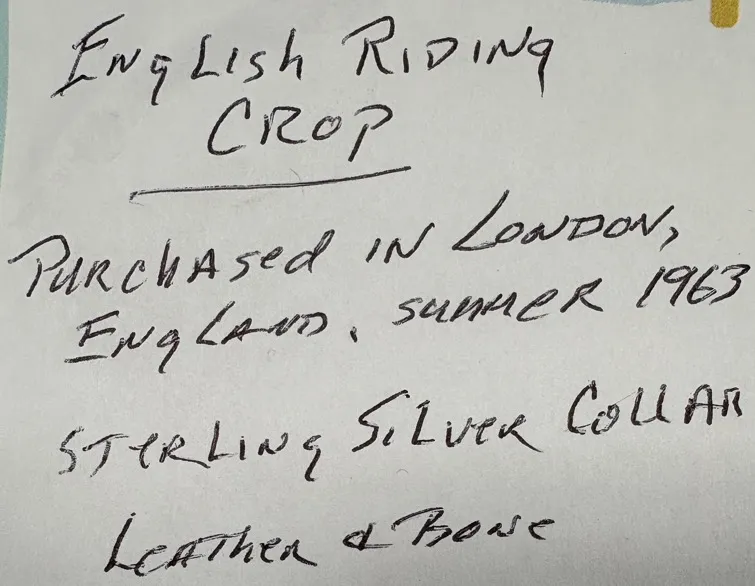 English Riding
Crop
Purchased in London,
England, summer 1963
Sterling Silver Collar
Leather & Bone